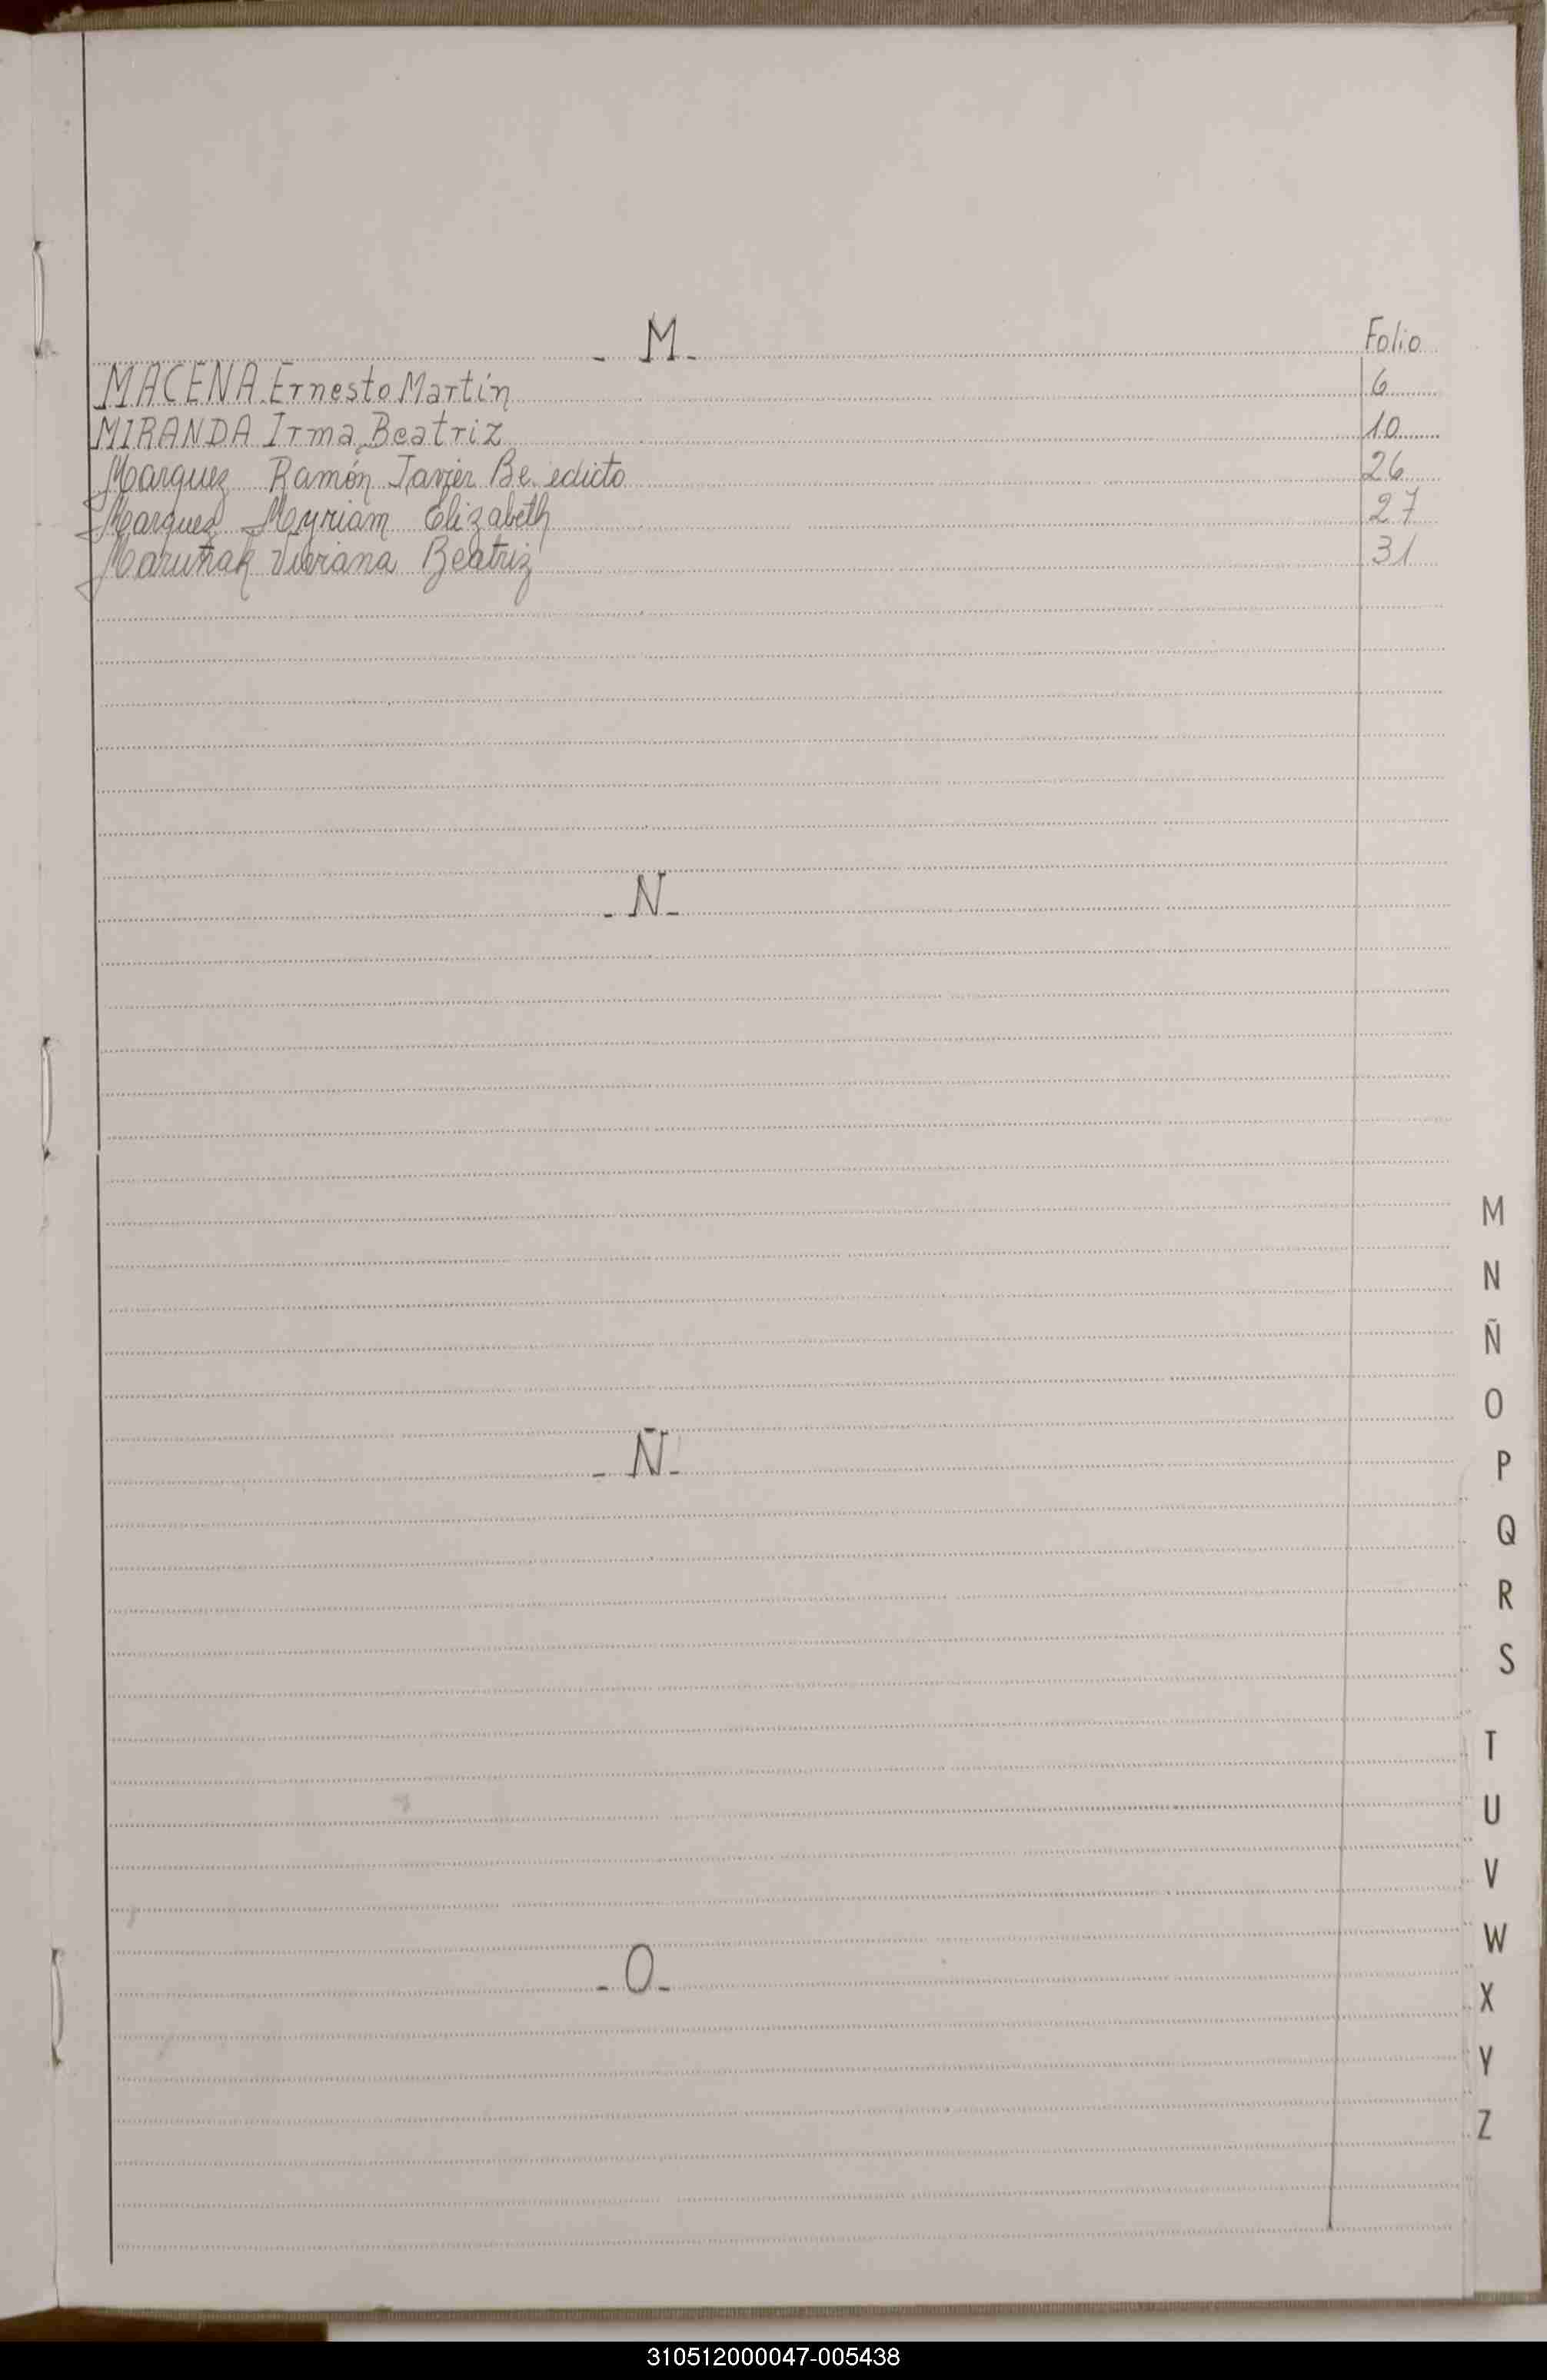 - M - Folio
MACENA Ernesto Martín 6
MIRANDA Irma Beatriz 10
Marquez Ramón Javier Be edicto 26
Marquez Myriam Elizabeth 27
Maruñak Viviana Beatriz 31
- N -
- Ñ -
- O -
M
N
Ñ
O
P
Q
R
S
T
U
V
W
X
Y
Z
310512000047-005438